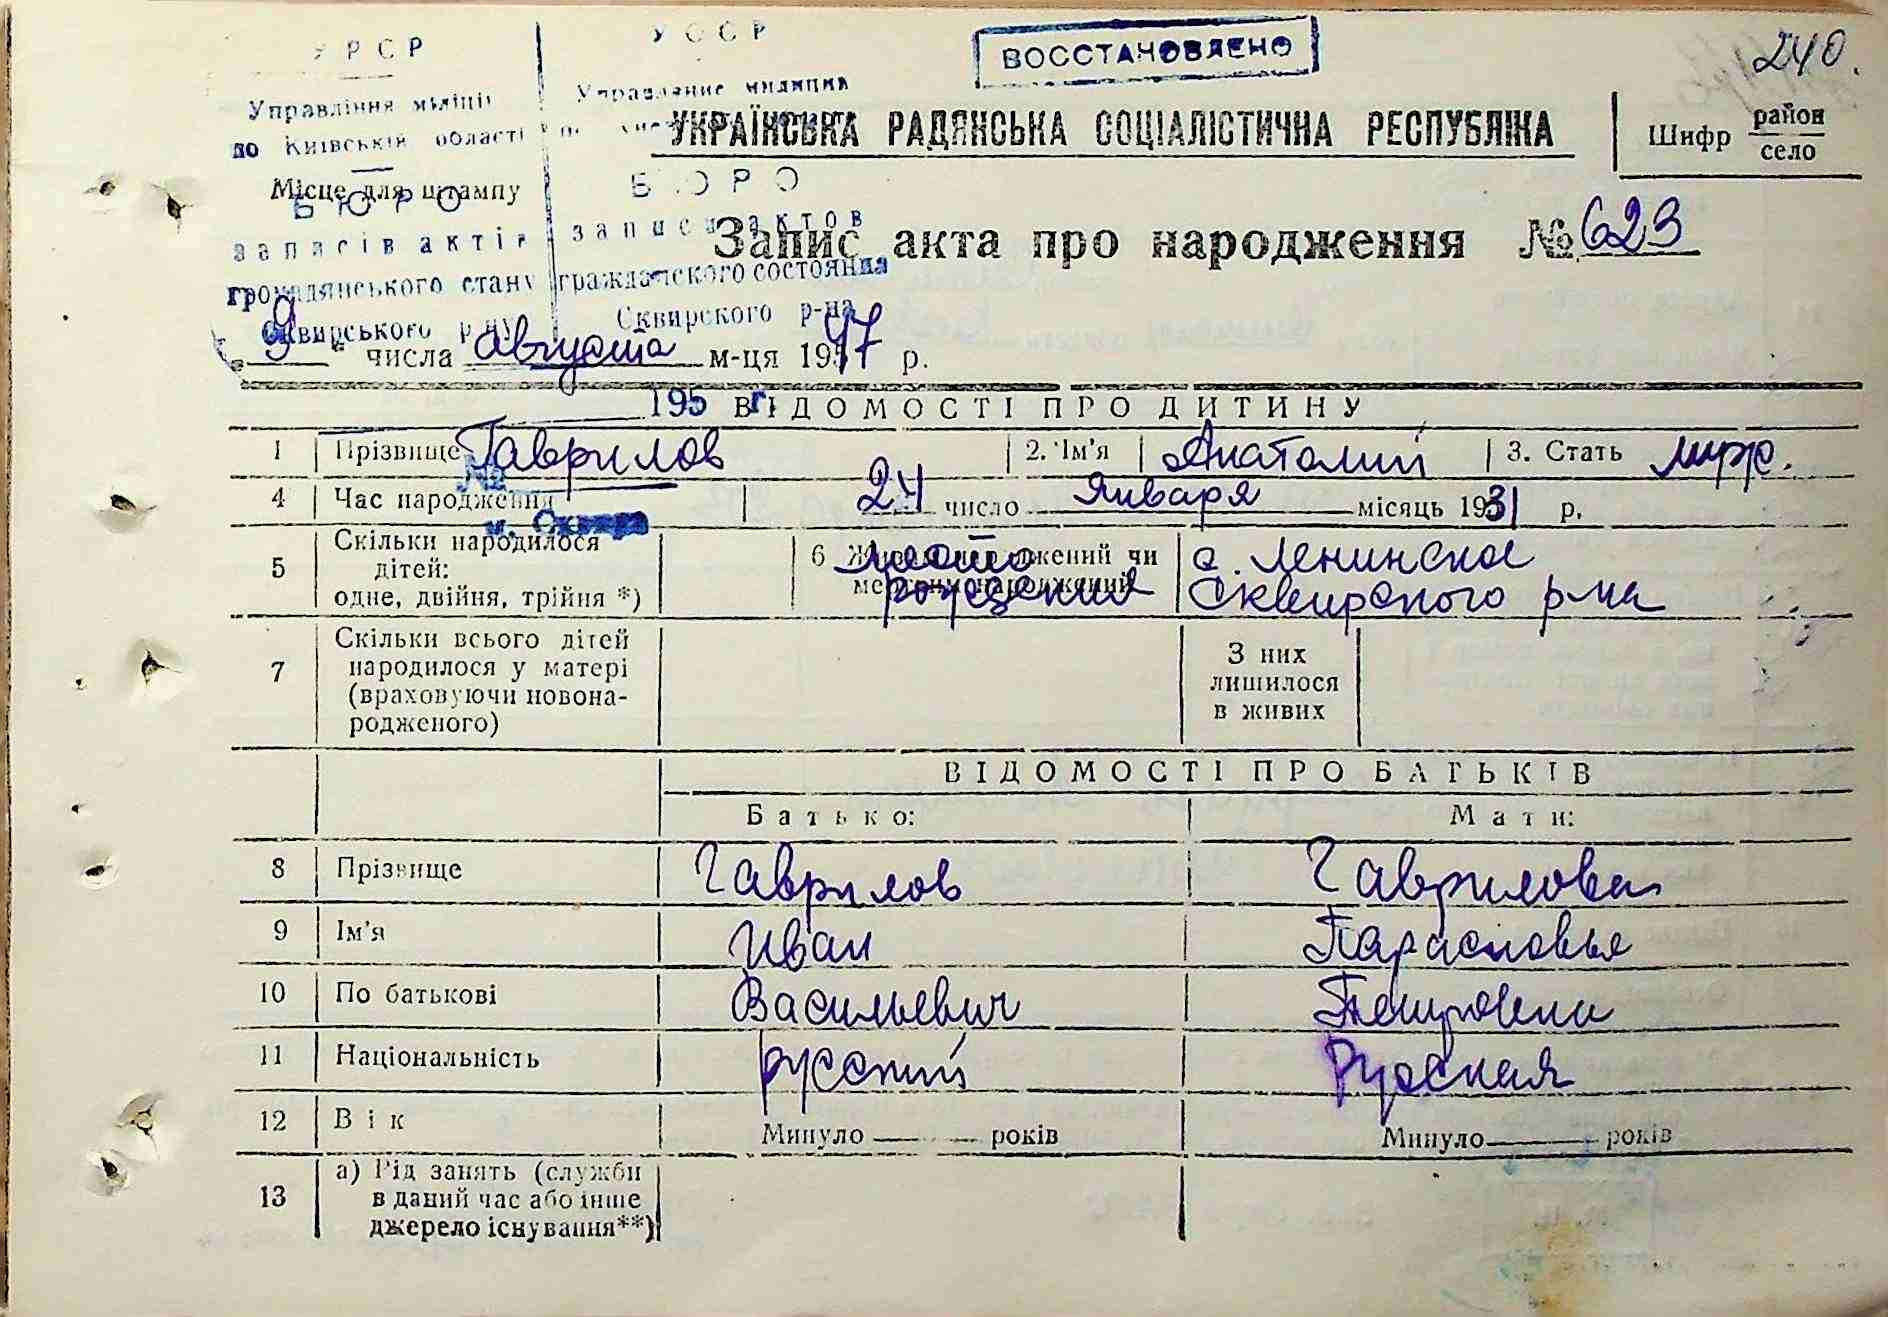 УРСР
УССР
ВОССТАНОВЛЕНО
240.
Управління міліції
Управление милиции
по Київській області
УКРАЇНСЬКА РАДЯНСЬКА СОЦІАЛІСТИЧНА РЕСПУБЛІКА
Шифр район
село
Місце для штампу
БЮРО
БЮРО
записів актів
записи актов
Запис акта про народження № 623
громадянського стану
гражданского состояния
Сквирського р-ну
Сквирского р-на
9 числа августа м-ця 1947 р.
195 г.
ВІДОМОСТІ ПРО ДИТИНУ
1 Прізвище Гаврилов 2. Ім'я Анатолий 3. Стать муж.
№
4 Час народження 24 число Января місяць 1931 р.
м. Сквира
5 Скільки народилося
дітей:
одне, двійня, трійня *)
6 Живонароджений чи
мертвонароджений
Место
рождения
с. Ленинское
Сквирского р-на
7 Скільки всього дітей
народилося у матері
(враховуючи новона-
родженого)
З них
лишилося
в живих
ВІДОМОСТІ ПРО БАТЬКІВ
Батько: Мати:
8 Прізвище Гаврилов Гаврилова
9 Ім'я Иван Парасковья
10 По батькові Васильевич Петровна
11 Національність русский Русская
12 Вік Минуло років Минуло років
13 а) Рід занять (служби
в даний час або інше
джерело існування**)